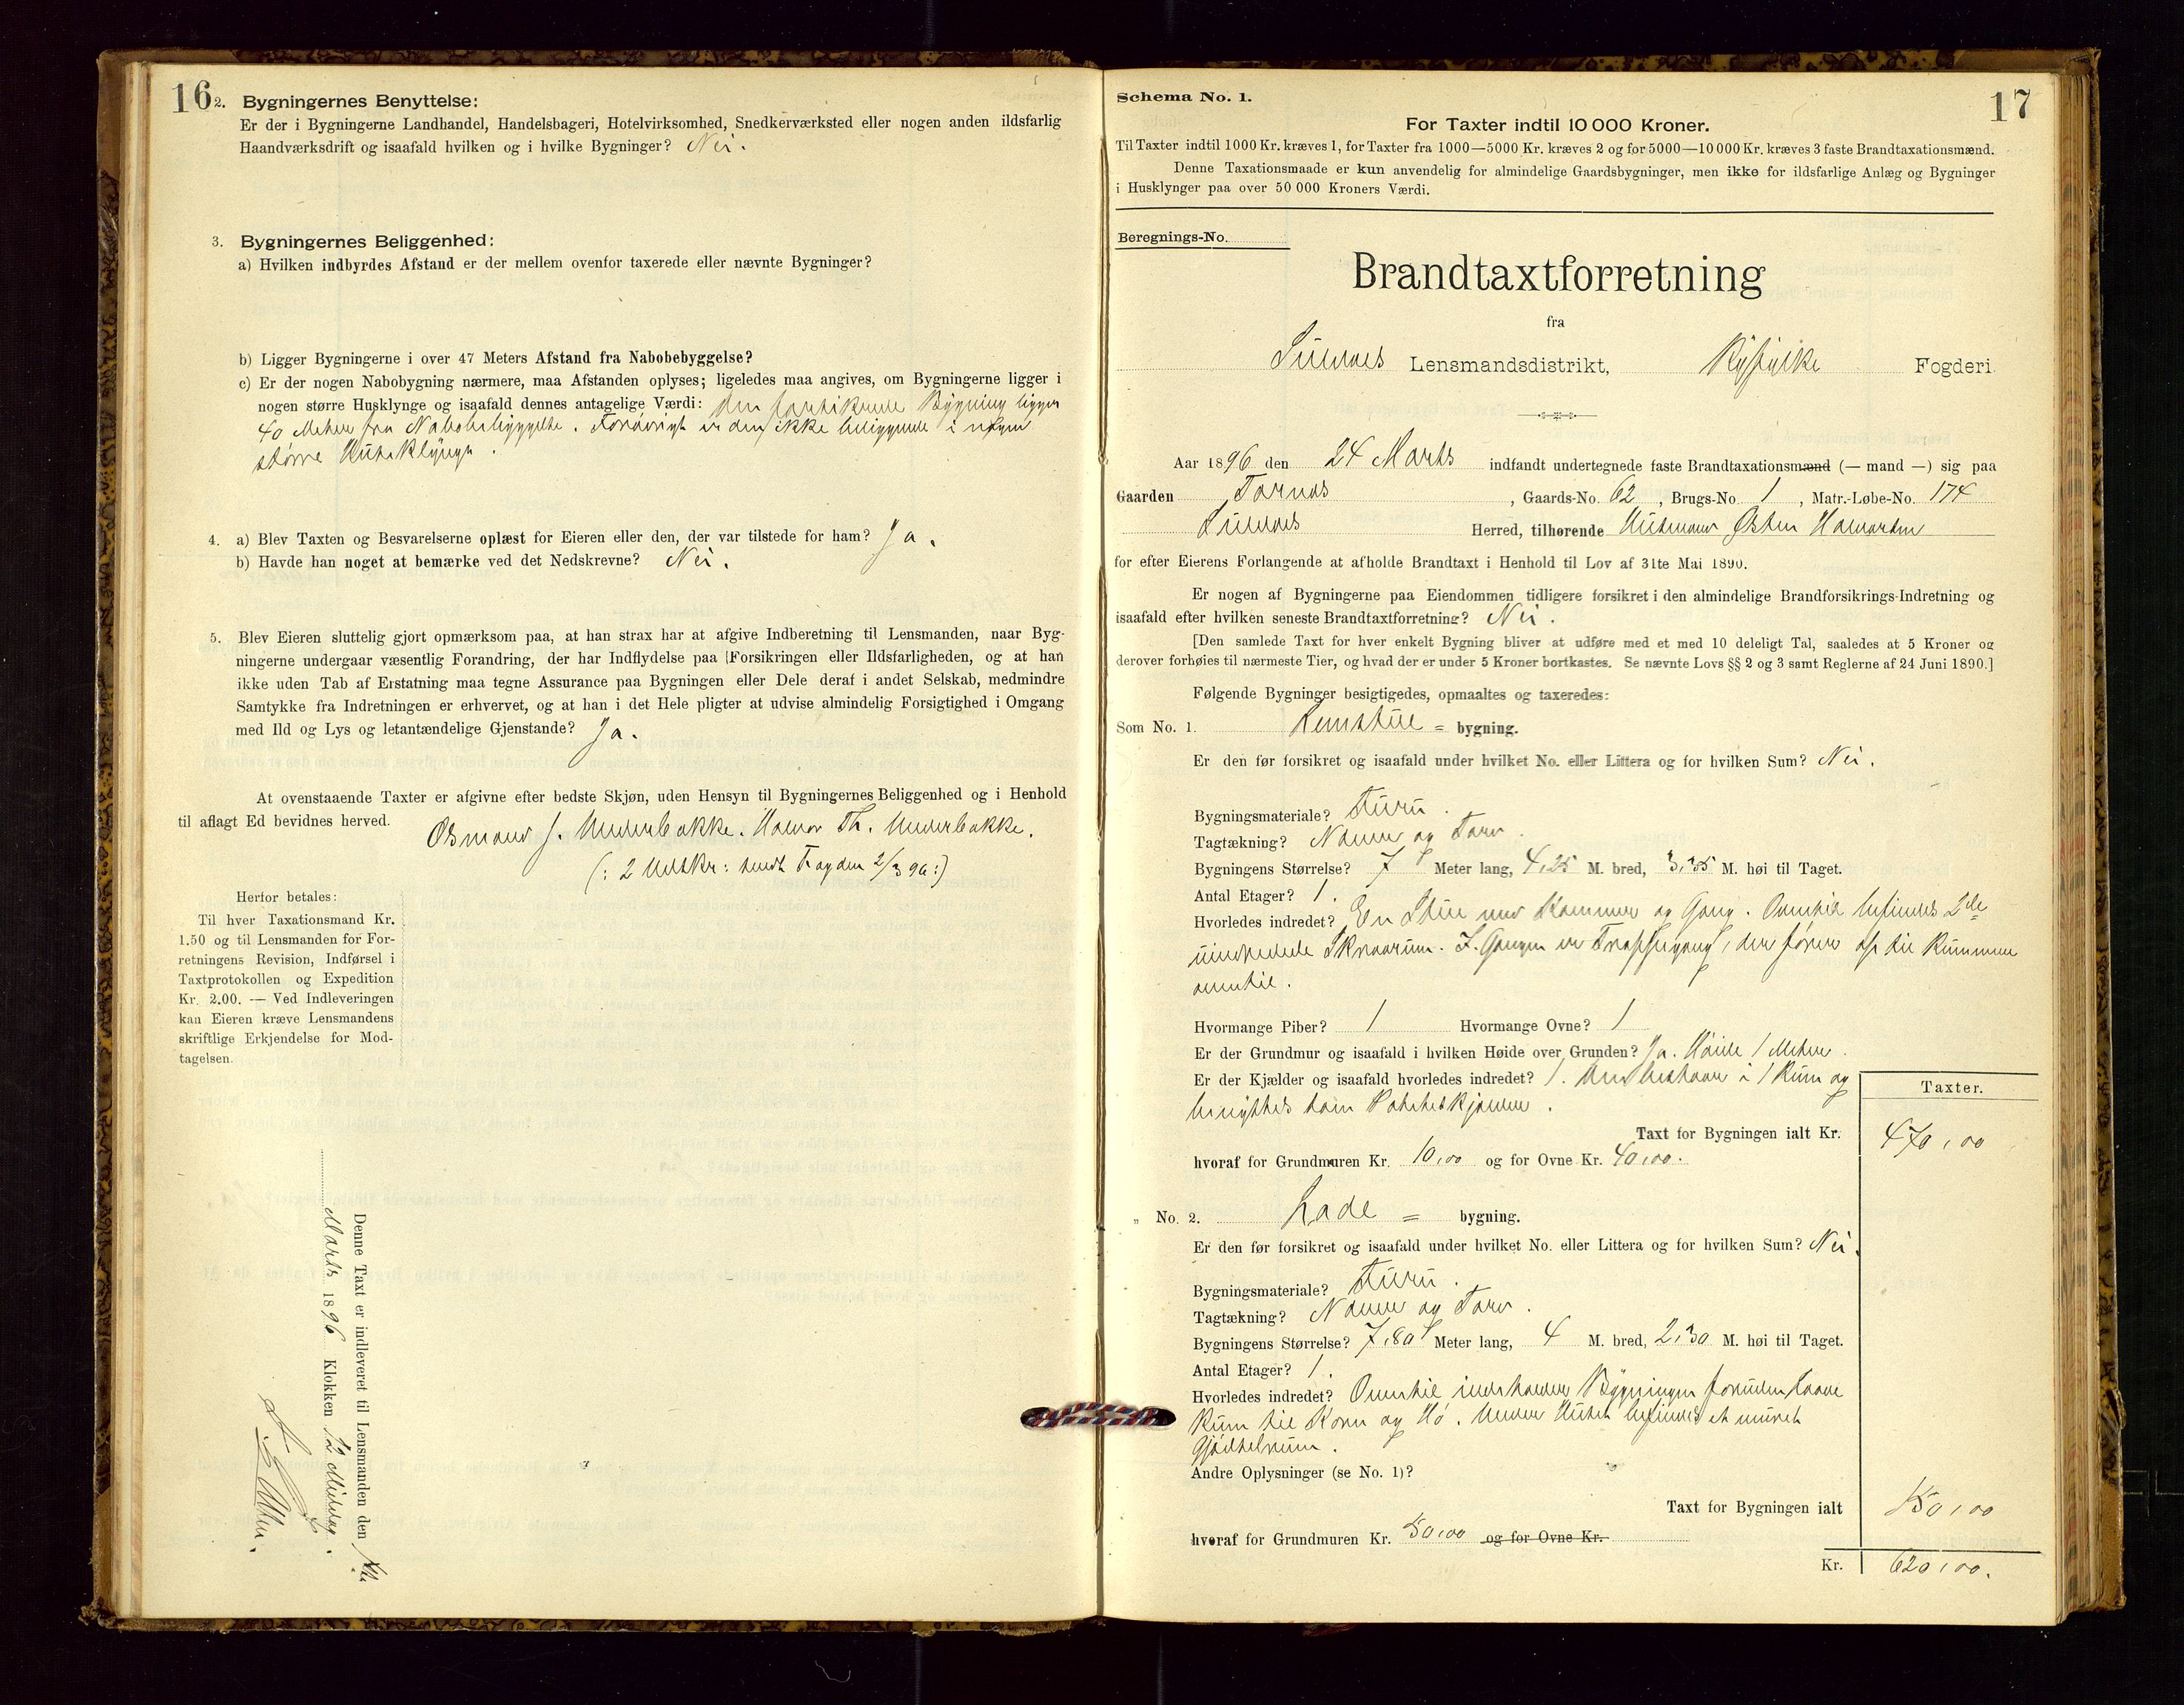 16
2. Bygningernes Benyttelse:
Er der i Bygningerne Landhandel, Handelsbageri, Hotelvirksomhed, Snedkerværksted eller nogen anden ildsfarlig
Haandværksdrift og isaafald hvilken og i hvilke Bygninger? Nei.
3. Bygningernes Beliggenhed:
a) Hvilken indbyrdes Afstand er der mellem ovenfor taxerede eller nævnte Bygninger?
b) Ligger Bygningerne i over 47 Meters Afstand fra Nabobebyggelse?
c) Er der nogen Nabobygning nærmere, maa Afstanden oplyses; ligeledes maa angives, om Bygningerne ligger i
nogen større Husklynge og isaafald dennes antagelige Værdi: Den Bygning ligger
40 Meter fra Nabobebyggelse. Forøvrigt er den ikke beliggende i nogen
større Huseklynge.
4. a) Blev Taxten og Besvarelserne oplæst for Eieren eller den, der var tilstede for ham? Ja.
b) Havde han noget at bemærke ved det Nedskrevne? Nei.
5. Blev Eieren sluttelig gjort opmærksom paa, at han strax har at afgive Indberetning til Lensmanden, naar Byg-
ningerne undergaar væsentlig Forandring, der har Indflydelse paa Forsikringen eller Ildsfarligheden, og at han
ikke uden Tab af Erstatning maa tegne Assurance paa Bygningen eller Dele deraf i andet Selskab, medmindre
Samtykke fra Indretningen er erhvervet, og at han i det Hele pligter at udvise almindelig Forsigtighed i Omgang
med Ild og Lys og letantændelige Gjenstande? Ja.
At ovenstaaende Taxter er afgivne efter bedste Skjøn, uden Hensyn til Bygningernes Beliggenhed og i Henhold
til aflagt Ed bevidnes herved.
Osmund J. Underbakke. Halvor Th. Underbakke.
(: 2 Udskr: sendt Fogden 2/3 96:)
Herfor betales:
Til hver Taxationsmand Kr.
1.50 og til Lensmanden for For-
retningens Revision, Indførsel i
Taxtprotokollen og Expedition
Kr. 2.00. — Ved Indleveringen
kan Eieren kræve Lensmandens
skriftlige Erkjendelse for Mod-
tagelsen.
Denne Taxt er indleveret til Lensmanden den
Marts 1896 Klokken 12 Middag.
Schema No. 1.
17
For Taxter indtil 10 000 Kroner.
Til Taxter indtil 1000 Kr. kræves 1, for Taxter fra 1000—5000 Kr. kræves 2 og for 5000—10 000 Kr. kræves 3 faste Brandtaxationsmænd.
Denne Taxationsmaade er kun anvendelig for almindelige Gaardsbygninger, men ikke for ildsfarlige Anlæg og Bygninger
i Husklynger paa over 50 000 Kroners Værdi.
Beregnings-No.
Brandtaxtforretning
fra
Lensmandsdistrikt, Ryfylke Fogderi
Aar 1896 den 24 Marts indfandt undertegnede faste Brandtaxationsmænd (— mand —) sig paa
Gaarden Tornes, Gaards-No. 62, Brugs-No. 1, Matr.-Løbe-No. 174
Herred, tilhørende Husmand Østen Halvorsen
for efter Eierens Forlangende at afholde Brandtaxt i Henhold til Lov af 31te Mai 1890.
Er nogen af Bygningerne paa Eiendommen tidligere forsikret i den almindelige Brandforsikrings-Indretning og
isaafald efter hvilken seneste Brandtaxtforretning? Nei.
[Den samlede Taxt for hver enkelt Bygning bliver at udføre med et med 10 deleligt Tal, saaledes at 5 Kroner og
derover forhøies til nærmeste Tier, og hvad der er under 5 Kroner bortkastes. Se nævnte Lovs §§ 2 og 3 samt Reglerne af 24 Juni 1890.]
Følgende Bygninger besigtigedes, opmaaltes og taxeredes:
Som No. 1. Remstue = bygning.
Er den før forsikret og isaafald under hvilket No. eller Littera og for hvilken Sum? Nei.
Bygningsmateriale? Furu.
Tagtækning? Næver og Torv.
Bygningens Størrelse? 7 Meter lang, 4,25 M. bred, 3,35 M. høi til Taget.
Antal Etager? 1.
Hvorledes indredet? En Stue med Kammer og Gang. Oventil befindes 2de
uindredede Skraarum. I Gangen er Trappegang, der fører op til Rummene
oventil.
Hvormange Piber? 1 Hvormange Ovne? 1
Er der Grundmur og isaafald i hvilken Høide over Grunden? Ja. Høide 1 Meter.
Er der Kjælder og isaafald hvorledes indredet? 1. Den bestaar i 1 Rum og
benyttes som Poteteskjælder.
Taxter.
Taxt for Bygningen ialt Kr. 470,00
hvoraf for Grundmuren Kr. 10,00 og for Ovne Kr. 40,00.
" No. 2. Lade = bygning.
Er den før forsikret og isaafald under hvilket No. eller Littera og for hvilken Sum? Nei.
Bygningsmateriale? Furu.
Tagtækning? Næver og Torv.
Bygningens Størrelse? 7,80 Meter lang, 4 M. bred, 2,30 M. høi til Taget.
Antal Etager? 1.
Hvorledes indredet? Oventil indeholder Bygningen foruden Laave
Rum til Korn og Hø. Under Huset befindes et muret
Gjødselrum.
Andre Oplysninger (se No. 1)?
Taxt for Bygningen ialt 150,00
hvoraf for Grundmuren Kr. 50,00 og for Ovne Kr.
Kr. 620,00.